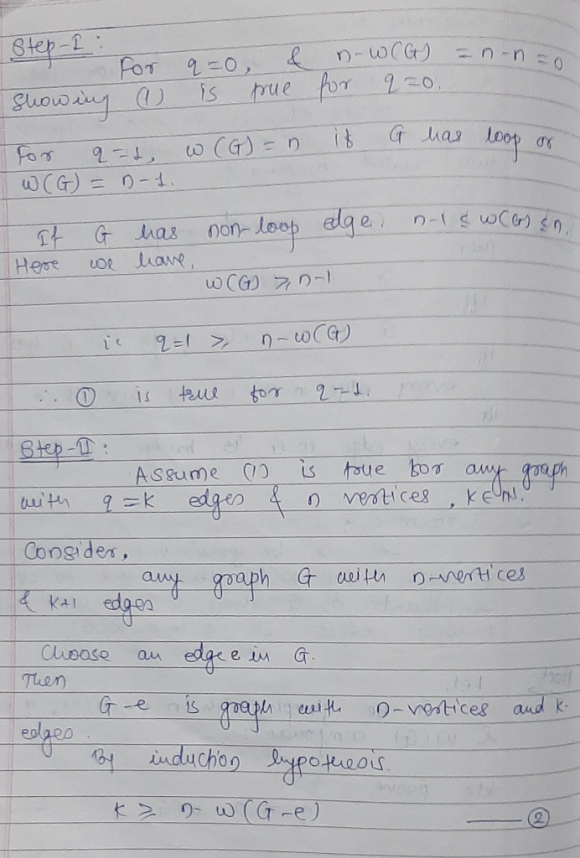 Step-I :
For q=0, & n-w(G) = n-n=0
showing (1) is true for q=0.
For q=1, w(G)=n if G has loop or
w(G) = n-1.
If G has non-loop edge. n-1 ≤ w(G) ≤ n.
Here we have,
w(G) ≥ n-1
ie q=1 ≥ n-w(G)
∴ ① is true for q=1.
Step-II :
Assume (1) is true for any graph
with q=k edges & n vertices, k∈N.
Consider,
any graph G with n-vertices
& k+1 edges
Choose an edge e in G.
Then
G-e is graph with n-vertices and k.
edges.
By induction hypothesis.
k ≥ n- w(G-e) — ②